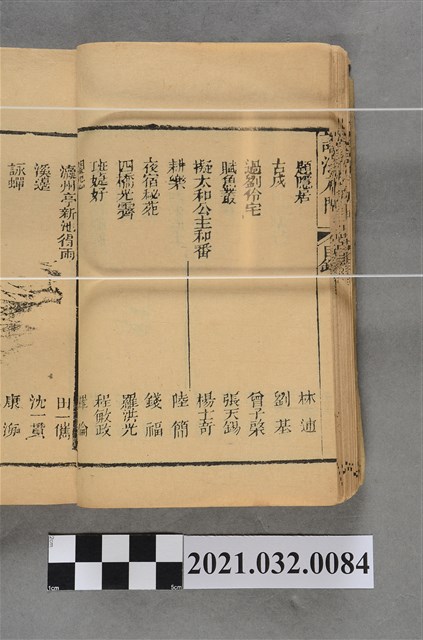 題隱居 林逋
古戍 劉基
過劉伶宅 曾子棨
賦魚叢 張天錫
擬太和公主和番 楊士奇
耕樂 陸簡
夜宿秘苑 錢福
四橋光霽 羅洪光
班婕妤 程敏政
瀛州亭新池省雨 田一儁
溪邊 沈一貫
詠蟬 康海
目錄
2cm
1cm
5cm
2021.032.0084